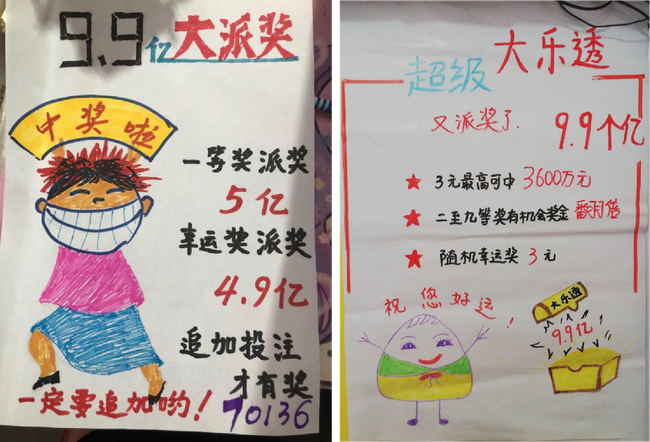 9.9亿大派奖
中奖啦
一等奖派奖
5亿
幸运奖派奖
4.9亿
追加投注
才有奖
一定要追加哟！
70136
超级大乐透
又派奖了
9.9个亿
★ 3元最高可中3600万元
★ 二至九等奖有机会奖金翻倍
★ 随机幸运奖3元
祝您好运！
大乐透
9.9亿